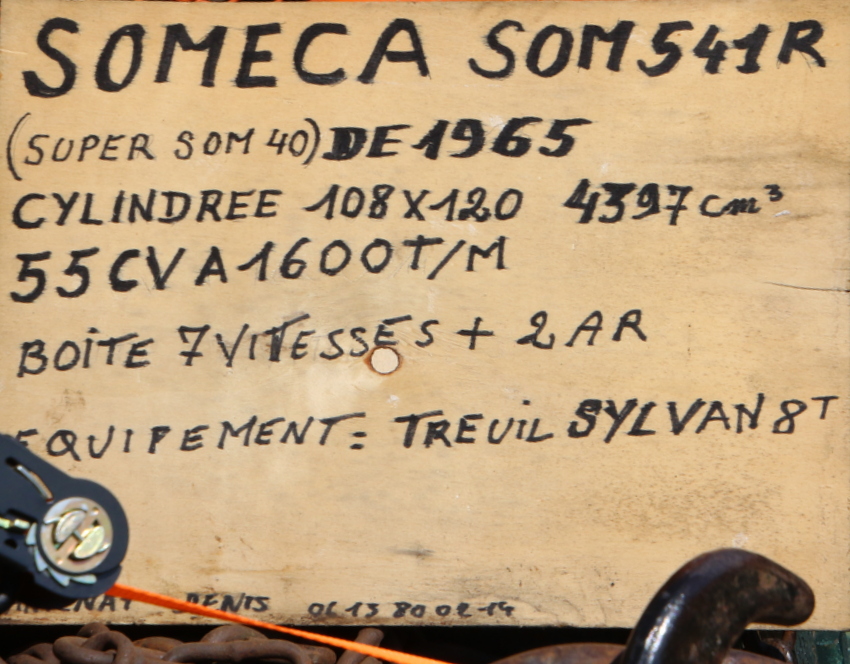 SOMECA SOM541R
(SUPER SOM 40) DE 1965
CYLINDREE 108X120 4397cm³
55CV A 1600T/M
BOiTE 7 VITESSES + 2 AR
EQUIPEMENT: TREUiL SYLVAN 8T
DENTS 06 13 80 02 14